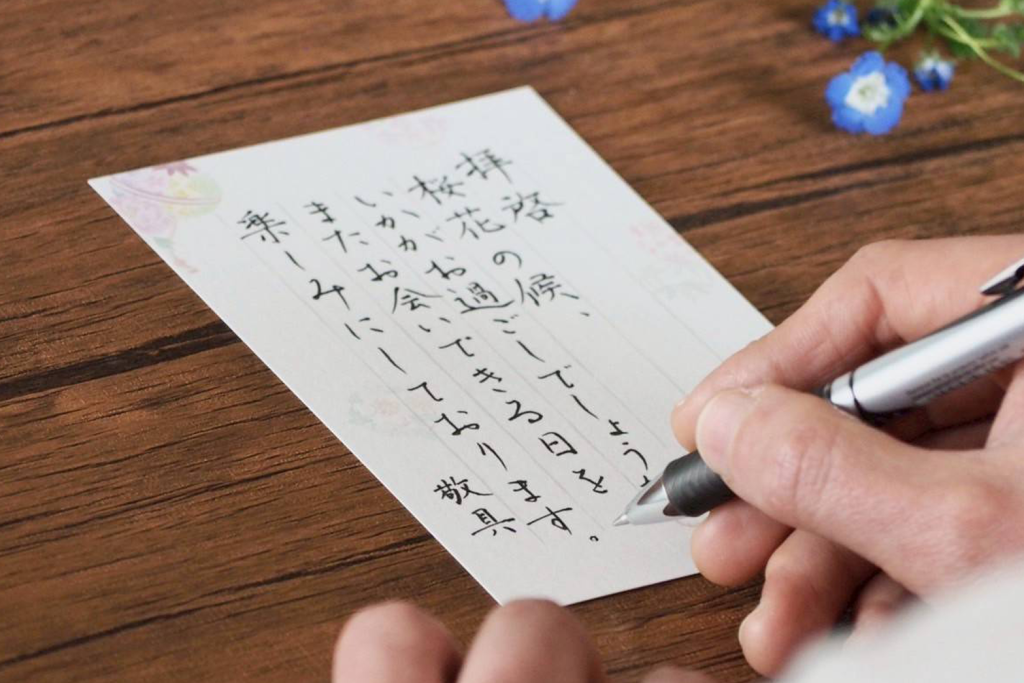 拝啓
桜花の候、
いかがお過ごしでしょう
またお会いできる日を
楽しみにしております。
敬具